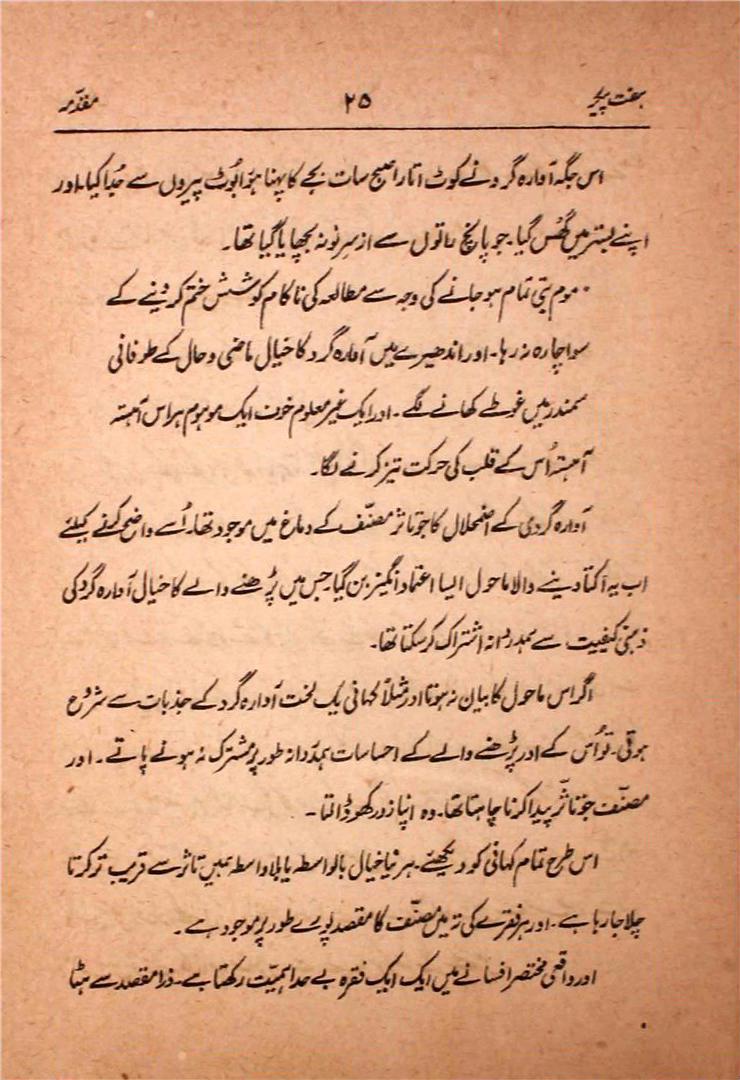 ہفت پیکر ۲۵ مقدمہ
اس جگہ آوارہ گرد نے کوٹ اتارا صبح سات بجے کا پہنا ہوا بُوٹ پیروں سے جُدا کیا۔ اور
اپنے بستر میں گھُس گیا۔ جو پانچ راتوں سے از سرِ نو نہ بچھایا گیا تھا۔
موم بتی تمام ہو جانے کی وجہ سے مطالعہ کی ناکام کوشش ختم کر دینے کے
سوا چارہ نہ رہا۔ اور اندھیرے میں آوارہ گرد کا خیال ماضی و حال کے طوفانی
سمندر میں غوطے کھانے لگے۔ اور ایک غیر معلوم خوف ایک موہوم ہراس آہستہ
آہستہ اُس کے قلب کی حرکت تیز کرنے لگا۔
آوارہ گردی کے اضمحلال کا جو تاثر مصنّف کے دماغ میں موجود تھا۔ اُسے واضح کرنے کیلئے
اب یہ اکتا دینے والا ماحول ایسا اعتماد انگیز بن گیا۔ جس میں پڑھنے والے کا خیال آوارہ گرد کی
ذہنی کیفیت سے ہمدردانہ اشتراک کر سکتا تھا۔
اگر اس ماحول کا بیان نہ ہوتا اور مثلاً کہانی یک لخت آوارہ گرد کے جذبات سے شروع
ہوتی۔ تو اُس کے اور پڑھنے والے کے احساسات ہمدردانہ طور پر مشترک نہ ہونے پاتے۔ اور
مصنّف جو تاثّر پیدا کرنا چاہتا تھا۔ وہ اپنا زور کھو ڈالتا۔
اس طرح تمام کہانی کو دیکھئے۔ ہر نیا خیال بالواسطہ یا بلاواسطہ ہمیں تاثر سے قریب تر کرتا
چلا جا رہا ہے۔ اور ہر فقرے کی تہ میں مصنّف کا مقصد پورے طور پر موجود ہے۔
اور واقعی مختصر افسانے میں ایک ایک فقرہ بے حد اہمیّت رکھتا ہے۔ ذرا مقصد سے ہٹا